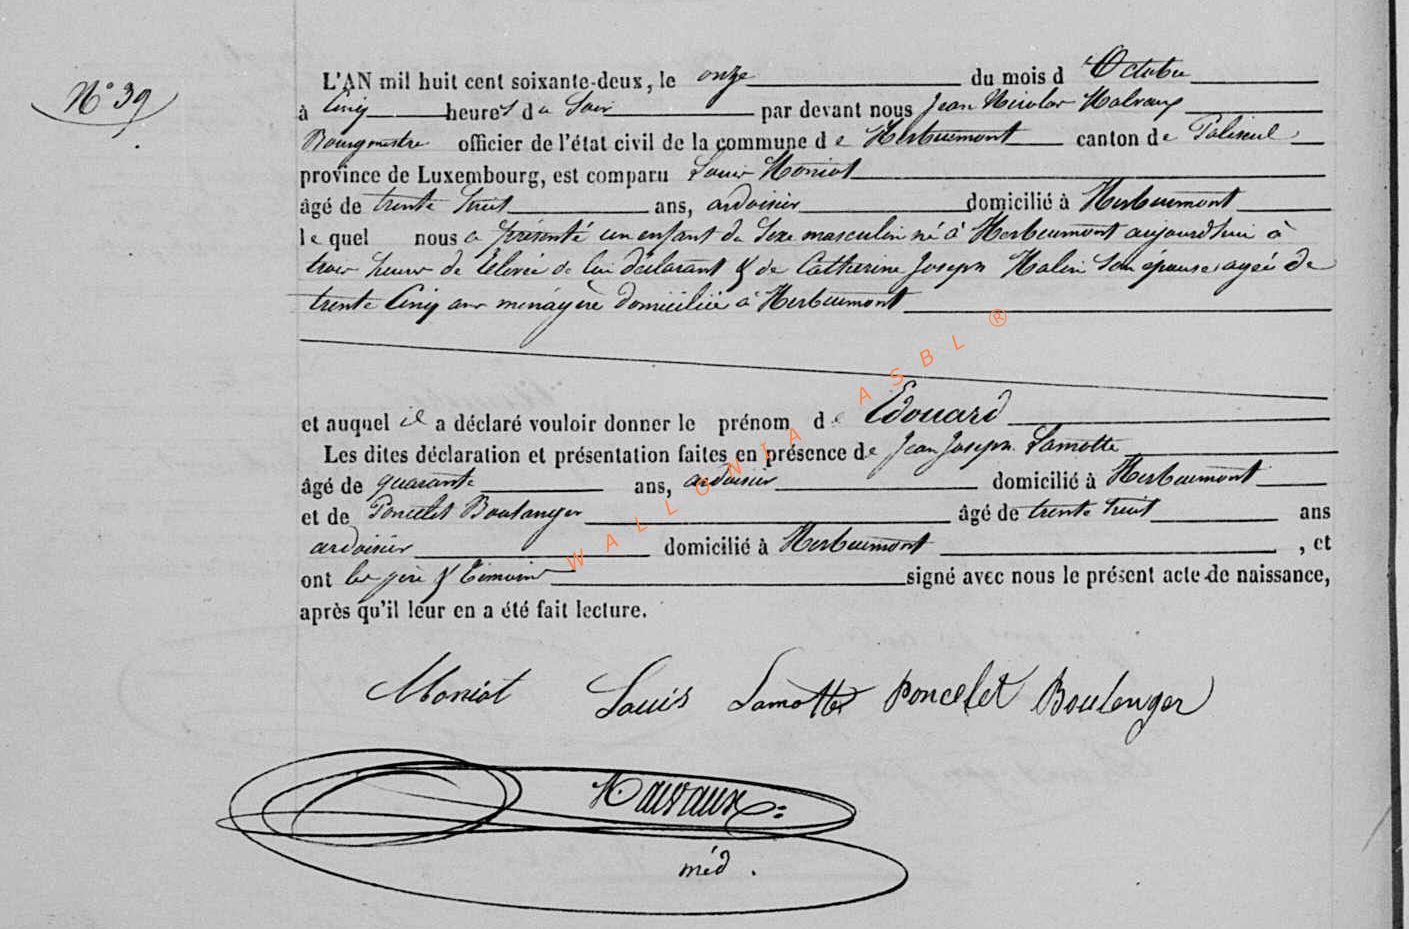 N° 39
L'AN mil huit cent soixante-deux, le onze du mois d Octobre
à Cinq heures du Soir par devant nous Jean Nicolas Malvaux
Bourgmestre officier de l'état civil de la commune de Herbeumont canton de Paliseul
province de Luxembourg, est comparu Louis Moniot
âgé de trente huit ans, ardoisier domicilié à Herbeumont
lequel nous a présenté un enfant du Sexe masculin né à Herbeumont aujourd'hui à
trois heures de relevée de lui déclarant & de Catherine Joseph Son épouse, agée de
trente Cinq ans ménagère domiciliée à Herbeumont
et auquel il a déclaré vouloir donner le prénom de Edouard
Les dites déclaration et présentation faites en présence de Jean Joseph Lamotte
âgé de quarante ans, ardoisier domicilié à Herbeumont
et de Poncelet Boulanger âgé de trente huit ans
ardoisier domicilié à Herbeumont , et
ont les père & témoins signé avec nous le présent acte de naissance,
après qu'il leur en a été fait lecture.
Moniot Louis Lamotte Poncelet Boulenger
Malvaux
méd.
WALLONIA ASBL ®